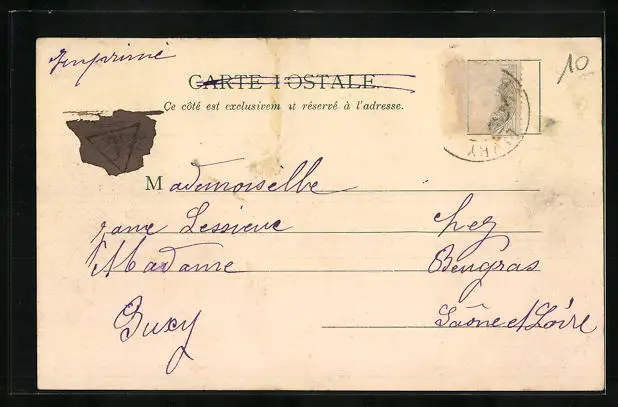 Imprimé
10
CARTE POSTALE
Ce côté est exclusivem nt réservé à l'adresse.
Mademoiselle
Jane Lessieue chez
Madame Bengras
Buxy Saône et Loire